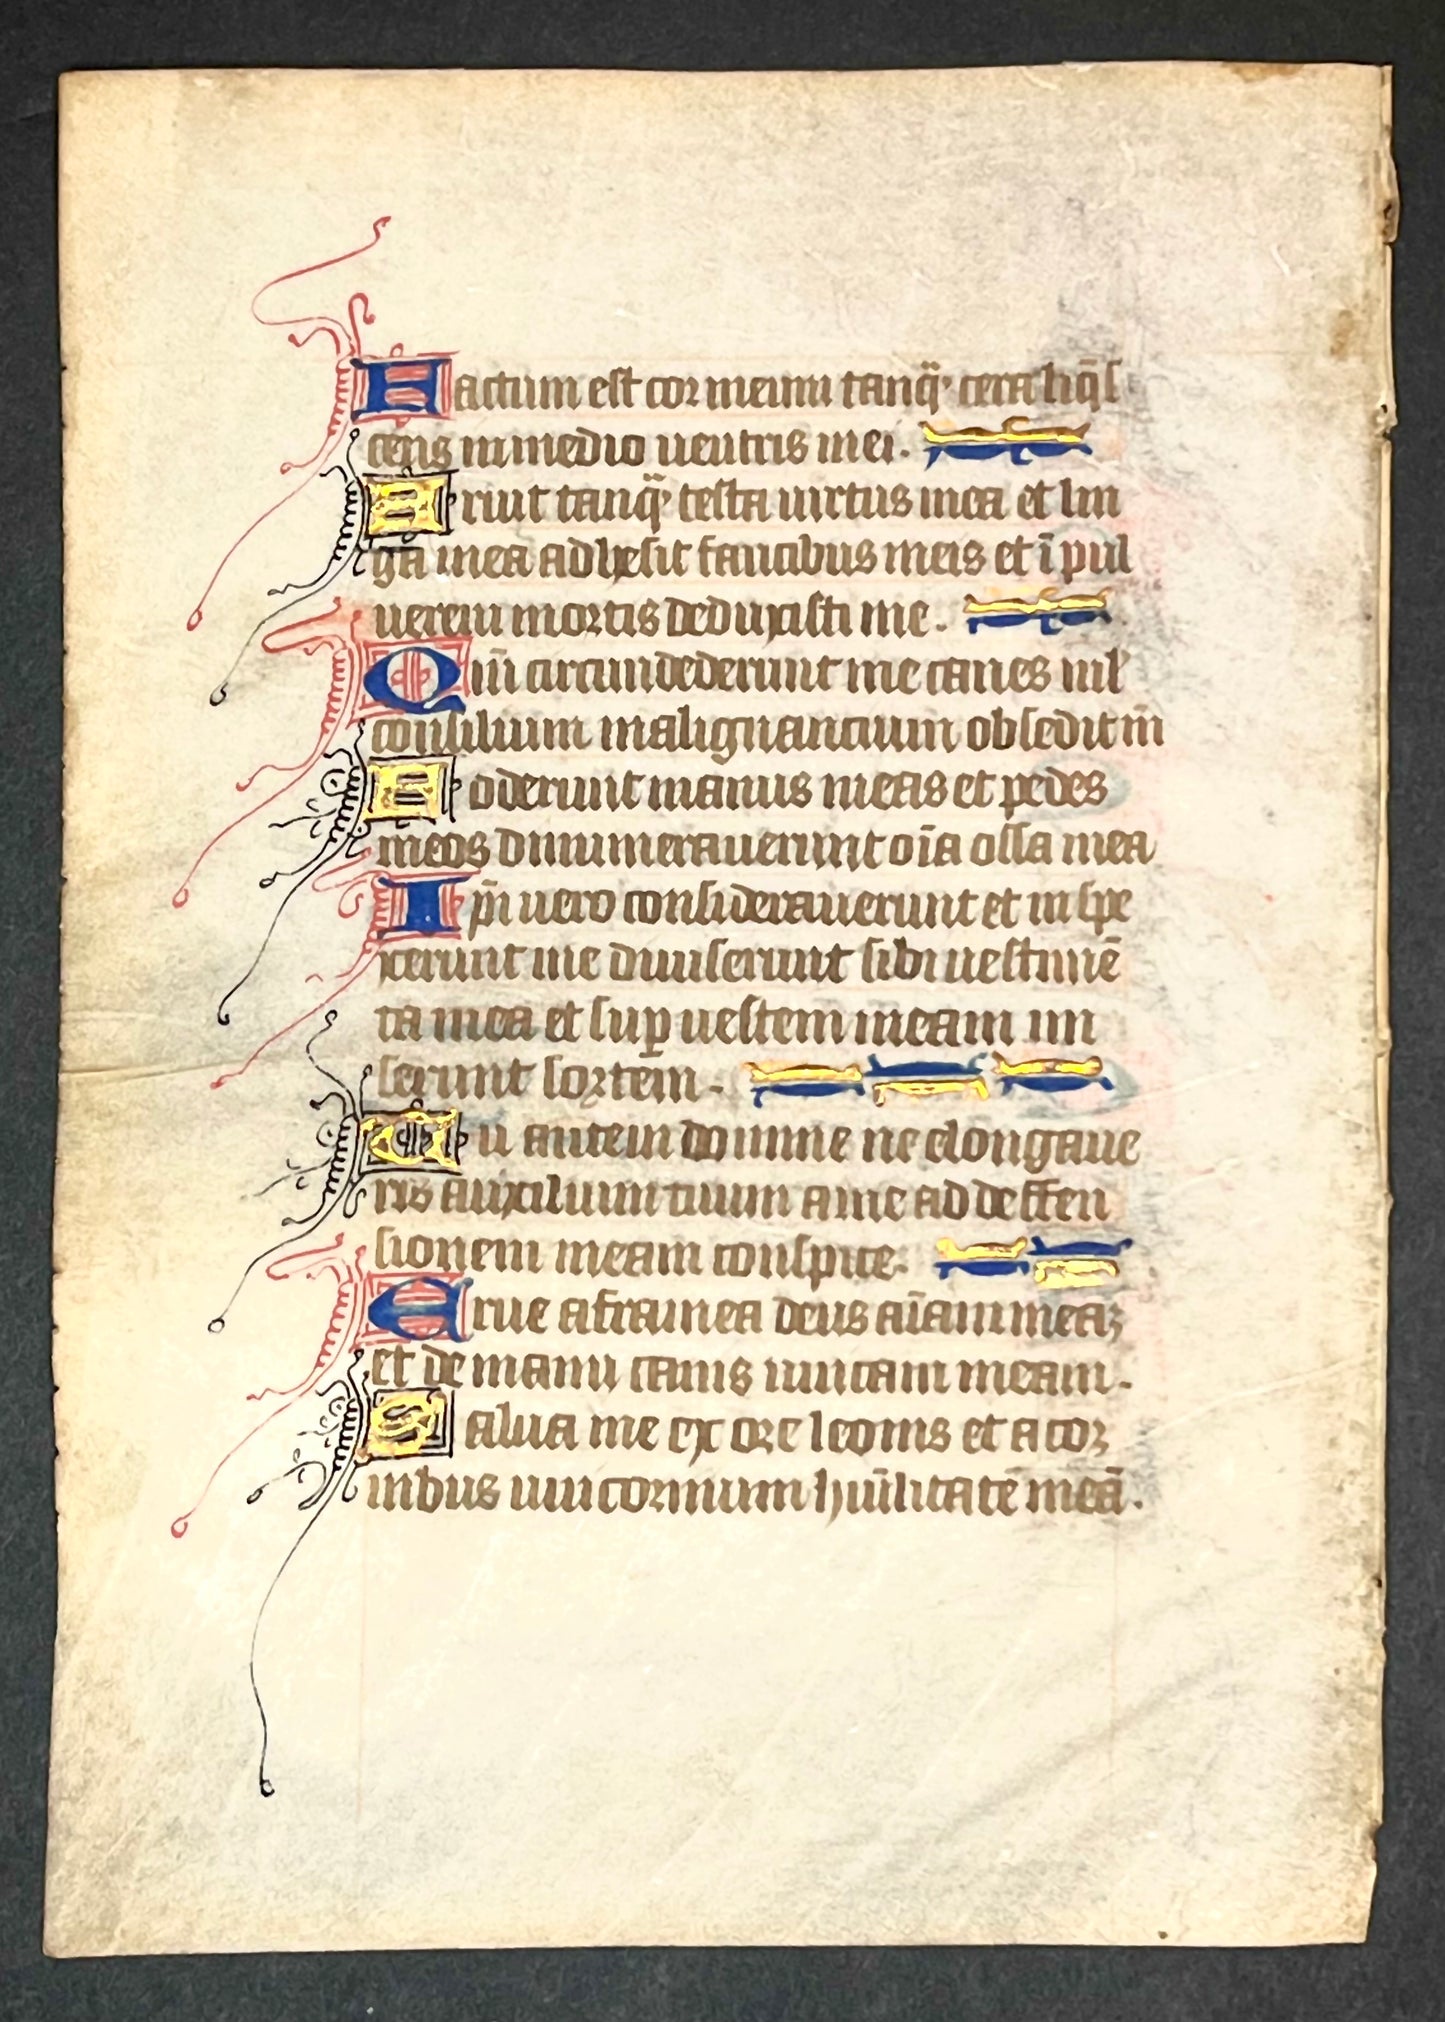 Factum est cor meum tanq̄ᷓ cera liq̄s
cens in medio uentris mei.
Aruit tanq̄ᷓ testa uirtus mea et lin
gua mea adhesit faucibus meis et ī pul
uerem mortis deduxisti me.
Qm̄ circumdederunt me canes ml̄
consilium malignancium obsedit m̄
Foderunt manus meas et pedes
meos dinumerauerunt oīa ossa mea
Ip̄i uero considerauerunt et inspe
xerunt me diuiserunt sibi uestimē
ta mea et suꝑ uestem meam mi
serunt sortem.
Tu autem domine ne elongaue
ris auxilium tuum a me ad deffen
sionem meam conspice.
Erue a framea deus aīam meaꝫ
et de manu canis unicam meam.
Salua me ex ore leonis et a cor
nibus unicornium hūilitatē meā.